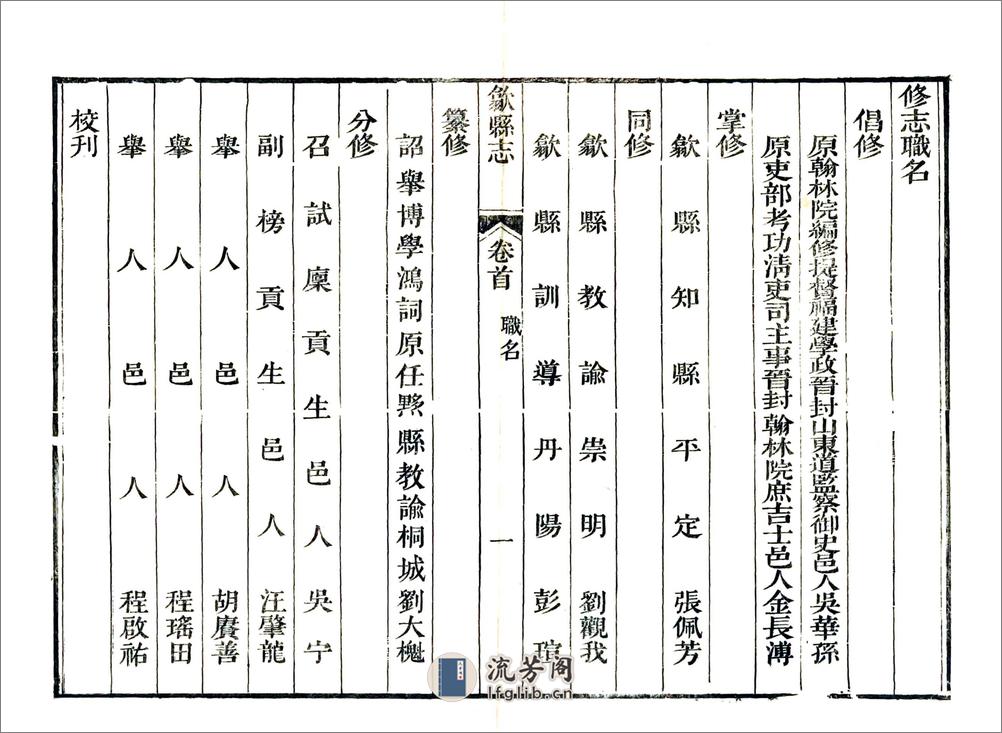 修志職名
倡修
原翰林院編修提督福建學政晉封山東道監察御史邑人吳華孫
原吏部考功淸吏司主事晉封翰林院庶吉士邑人金長溥
掌修
歙縣知縣平定張佩芳
同修
歙縣教諭崇明劉觀我
歙縣訓導丹陽彭瑄
歙縣志 卷首 職名 一
纂修
詔舉博學鴻詞原任黟縣教諭桐城劉大櫆
分修
召試廩貢生邑人吳宁
副榜貢生邑人汪肇龍
舉人邑人胡賡善
舉人邑人程瑤田
舉人邑人程啟祐
校刊
流芳阁
lfglib.cn